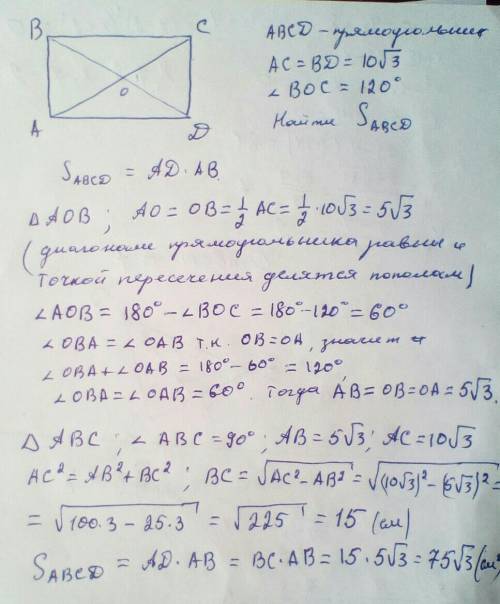 B C
ABCD – прямоугольник
AC = BD = 10√3
∠BOC = 120°
O
A D
Найти S_ABCD
S_ABCD = AD · AB.
△ AOB ; AO = OB = 1/2 AC = 1/2 · 10√3 = 5√3
(диагонали прямоугольника равны и
точкой пересечения делятся пополам)
∠AOB = 180° – ∠BOC = 180° – 120° = 60°
∠OBA = ∠OAB т.к. OB = OA, значит и
∠OBA + ∠OAB = 180° – 60° = 120°,
∠OBA = ∠OAB = 60°. Тогда AB = OB = OA = 5√3.
△ ABC ; ∠ ABC = 90° ; AB = 5√3 ; AC = 10√3
AC² = AB² + BC² ; BC = √(AC² – AB²) = √((10√3)² – (5√3)²) =
= √(100·3 – 25·3) = √225 = 15 (см)
S_ABCD = AD · AB = BC · AB = 15 · 5√3 = 75√3 (см²